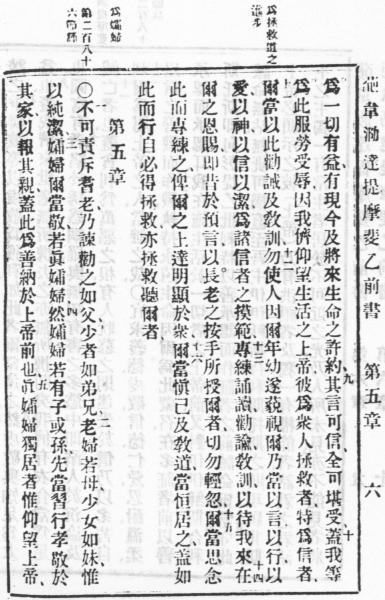 葩韋泐達提摩斐乙前書 第五章 六
為拯救道之
進步
為孀婦
第二百八十
六節
為一切有益有現今及將來生命之許約其言可信全可堪受蓋我等
為此服勞受辱因我儕仰望生活之上帝彼為衆人拯救者特為信者
爾當以此勸誡及敎訓勿使人因爾年幼遂藐視爾乃當以言以行以
愛以神以信以潔為諸信者之模範專練誦讀勸諭敎訓以待我來在
爾之恩賜即昔於預言以長老之按手所授爾者切勿輕忽爾當思念
此而專練之俾爾之上達明顯於衆爾當慎己及敎道當恒居之蓋如
此而行自必得拯救亦拯救聽爾者
第五章
○不可責斥耆老乃諫勸之如父少者如弟兄老婦若母少女如妹惟
以純潔孀婦爾當敬若眞孀婦然孀婦若有子或孫先當習行孝敬於
其家以報其親蓋此為善納於上帝前也眞孀婦獨居者惟仰望上帝